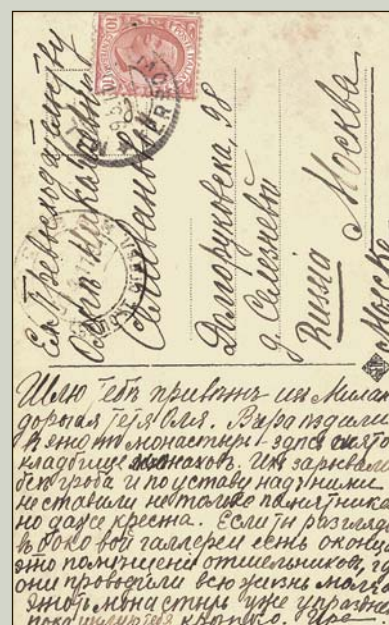 Ея Превосходительству
Ольге Николаевне
Долгоруковская, 98
д. Селезневой
Russia Москва
Шлю Тебѣ привѣтъ изъ Милана
дорогая тетя Оля. Вчера ѣздили
въ этотъ монастырь - здѣсь снято
кладбище монаховъ. Ихъ зарывали
безъ гроба и по уставу надъ ними
не ставили не только памятника
но даже креста. Если ты разгляд
въ боковой галлереи есть оконца
это помѣщенія отшельниковъ, гд
они проводили всю жизнь
Этотъ монастырь уже упраздн
пока